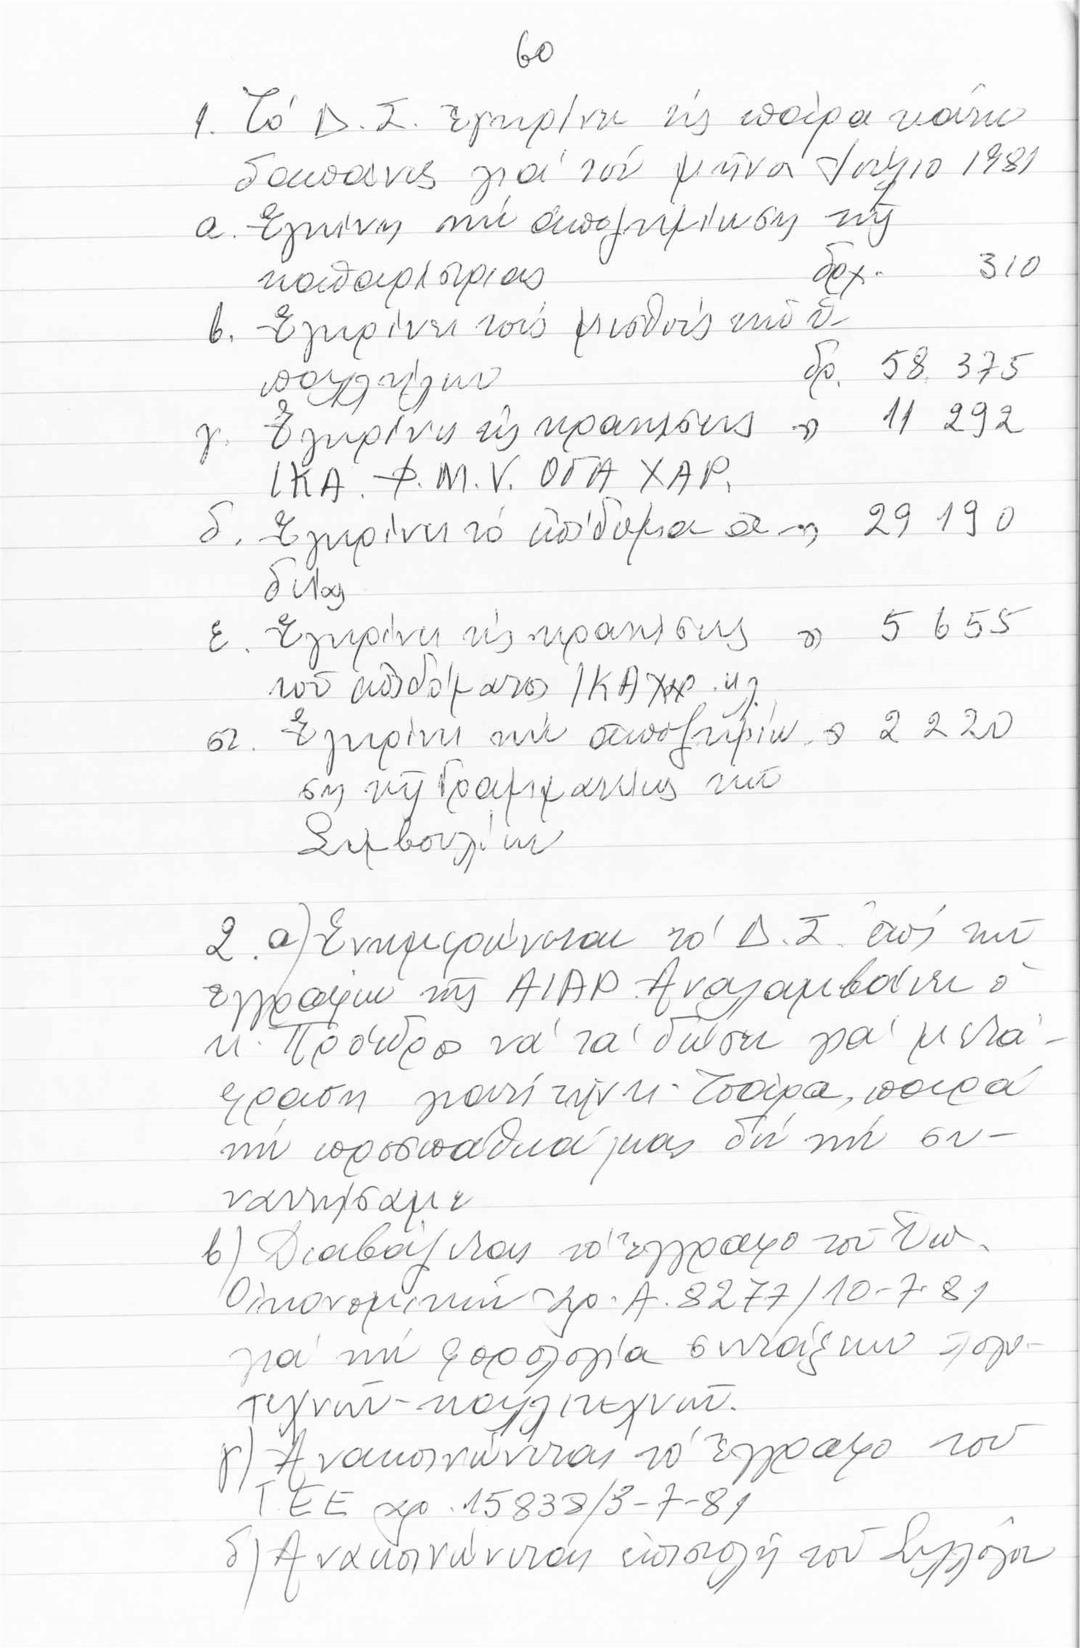 60
1. Τό Δ.Σ. Ἐγκρίνει τίς παρα κάτω
δαπάνες γιά τόν μῆνα Ἰούλιο 1981
α. Ἐγκρίνει τήν ἀποζημίωση τῆς
καθαρίστριας δρχ. 310
β. Ἐγκρίνει τούς μισθούς τῶν ὑ-
παλλήλων δρ. 58.375
γ. Ἐγκρίνει τίς κρατήσεις " 11 292
ΙΚΑ. Φ.Μ.Υ. ΟΓΑ ΧΑΡ.
δ. Ἐγκρίνει τό ἐπίδομα ἀ- " 29 190
δείας
ε. Ἐγκρίνει τίς κρατήσεις " 5 655
τοῦ ἐπιδόματος ΙΚΑ χαρ. κλ
στ. Ἐγκρίνει τήν ἀποζημίω- " 2 220
ση τῆς Γραμματείας τῶν
Συμβουλίων
2. α) Ἐνημερώνεται τό Δ.Σ. ἐπί τῶν
ἐγγράφων τῆς AIAP. Ἀναλαμβάνει ὁ
κ. Πρόεδρος νά τά δώσει γιά μετά-
φραση γιατί τήν κ. Τσάρα, παρά
τήν προσπάθειά μας δέν τήν συ-
ναντήσαμε
β) Διαβάζεται τό ἔγγραφο τοῦ Ὑπ.
Οἰκονομικῶν ἀρ. Α. 8277/10-7-81
γιά τήν φορολογία συντάξεων λογο-
τεχνῶν-καλλιτεχνῶν.
γ) Ἀνακοινώνεται τό ἔγγραφο τοῦ
ΤΕΕ ἀρ. 15838/3-7-81
δ) Ἀνακοινώνεται ἐπιστολή τοῦ Συλλόγου